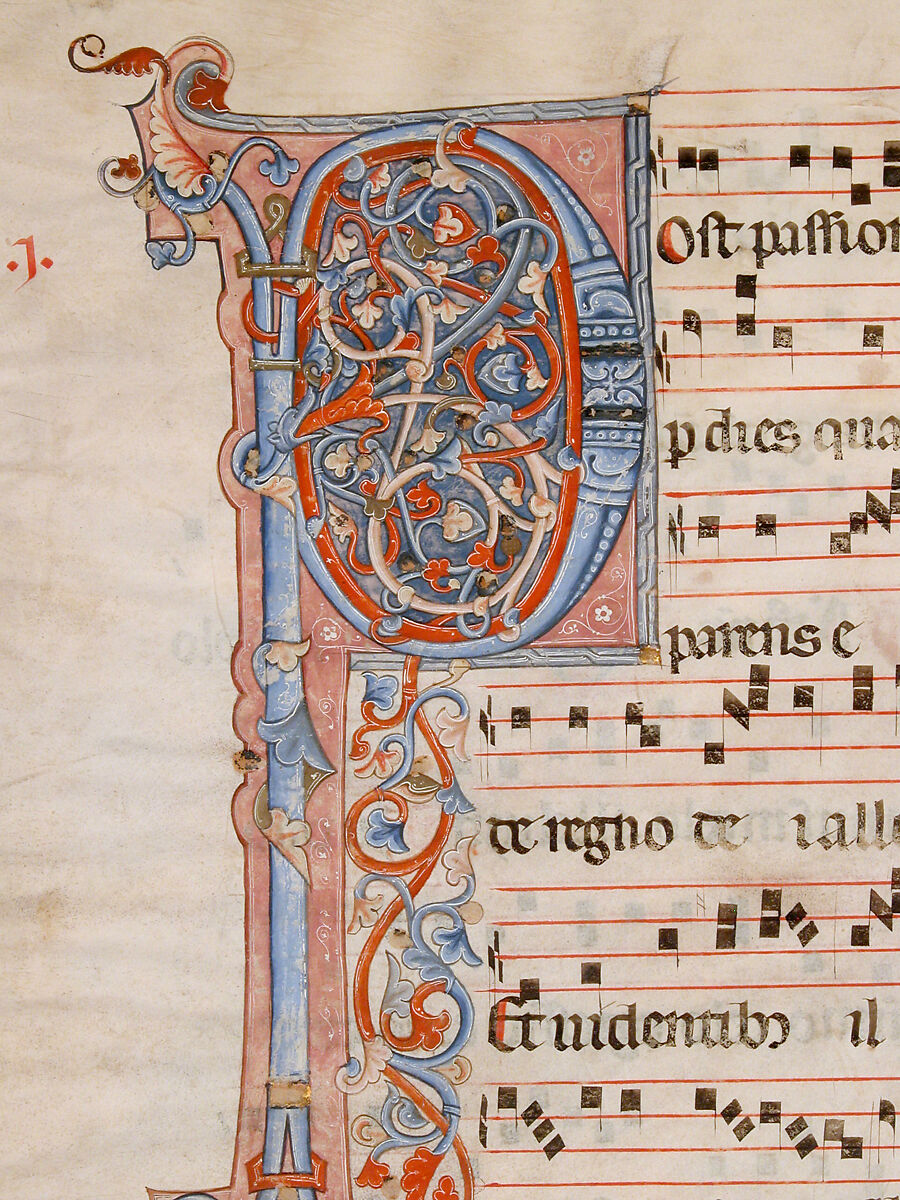 .j.
Post passion
p dies qua
parens e
de regno de i alle
Et uidentib; il